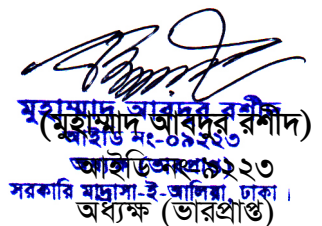 মুহাম্মাদ আবদুর রশীদ
(মুহাম্মাদ আবদুর রশীদ)
আইডি নং-০৯২২৩
আইডি নং-০৯২২৩
অধ্যক্ষ (ভারপ্রাপ্ত)
সরকারি মাদ্রাসা-ই-আলিয়া, ঢাকা।
অধ্যক্ষ (ভারপ্রাপ্ত)